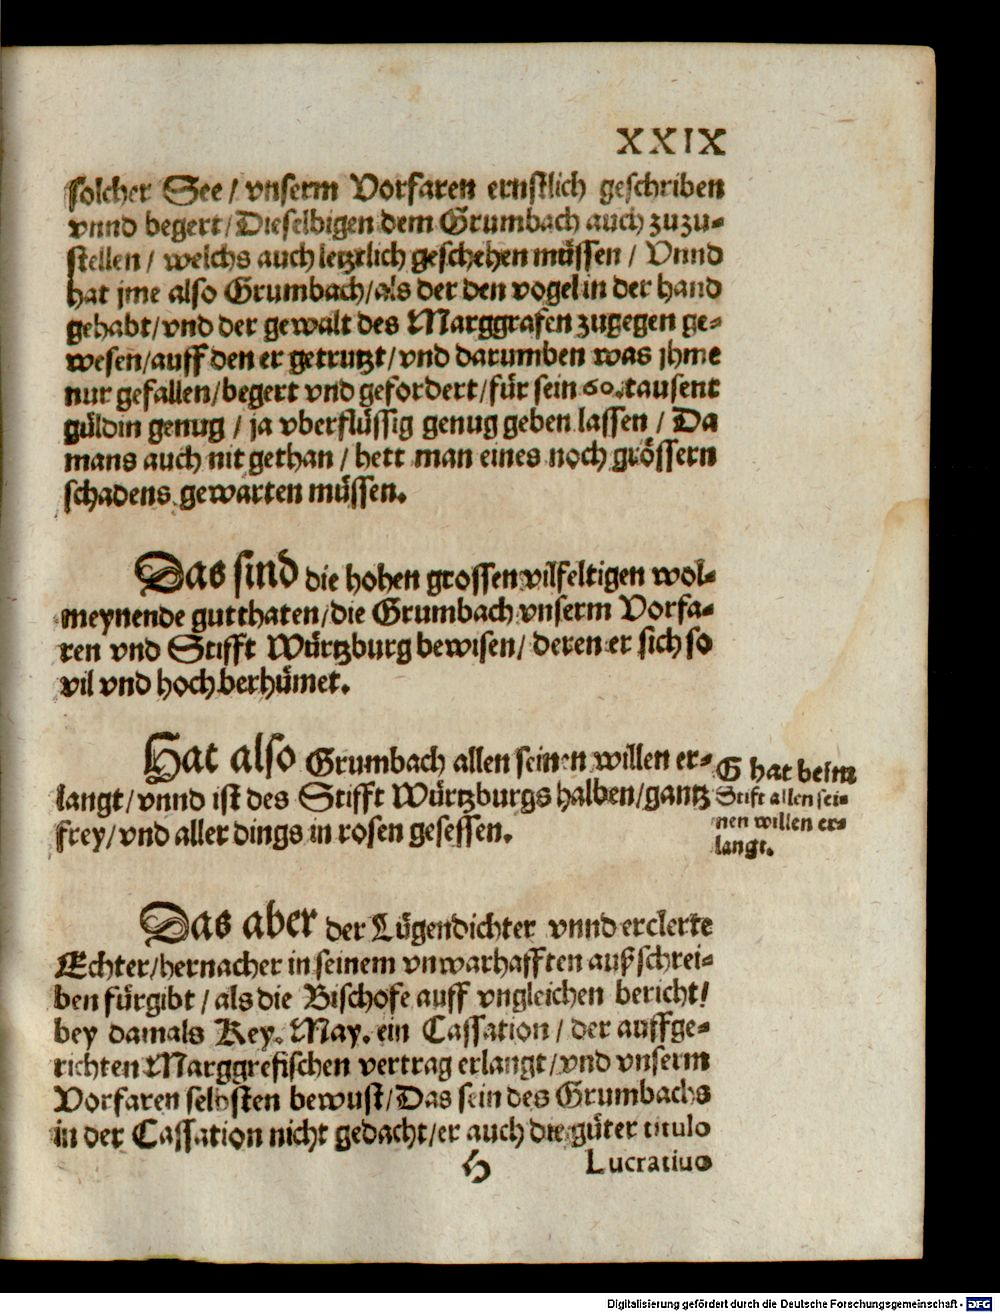 XXIX
solcher See / vnserm Vorfaren ernstlich geschriben
vnnd begert / Dieselbigen dem Grumbach auch zuzu-
stellen / welchs auch letztlich geschehen müssen / Vnnd
hat jme also Grumbach / als der den vogel in der hand
gehabt / vnd der gewalt des Marggrafen zugegen ge-
wesen / auff den er getrutzt / vnd darumben was jhme
nur gefallen / begert vnd gefordert / für sein 60. tausent
güldin genug / ja vberflüssig genug geben lassen / Da
mans auch nit gethan / hett man eines noch grössern
schadens gewarten müssen.
Das sind die hohen grossen vilfeltigen wol-
meynende gutthaten / die Grumbach vnserm Vorfa-
ren vnd Stifft Würtzburg bewisen / deren er sich so
vil vnd hoch berhümet.
Hat also Grumbach allen seinen willen er-
langt / vnnd ist des Stifft Würtzburgs halben / gantz
frey / vnd aller dings in rosen gesessen.
G hat beim
Stift allen sei-
nen willen er-
langt.
Das aber der Lügendichter vnnd erclerte
Echter / hernacher in seinem vnwarhafften außschrei-
ben fürgibt / als die Bischofe auff vngleichen bericht /
bey damals Key. May. ein Cassation / der auffge-
richten Marggrefischen vertrag erlangt / vnd vnserm
Vorfaren selbsten bewust / Das sein des Grumbachs
in der Cassation nicht gedacht / er auch die güter titulo
H
Lucratiuo
Digitalisierung gefördert durch die Deutsche Forschungsgemeinschaft - DFG